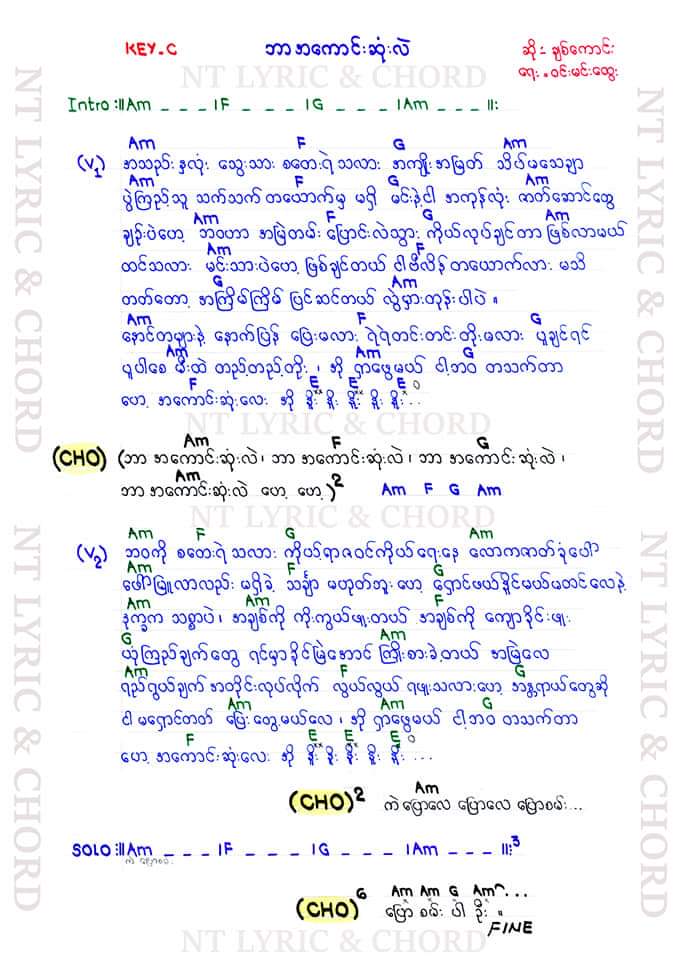 KEY.C ဘာအကောင်းဆုံးလဲ ဆို - ချစ်ကောင်း
ရေး - ဝင်းမင်းထွေး
NT LYRIC & CHORD
Intro :||Am _ _ _ |F _ _ _ |G _ _ _ |Am _ _ _ ||:
Am F G Am
(V1) အသည်းနှလုံး သွေးသား စတေးရဲသလား အကျိုးအမြတ် သိပ်မသေချာ
Am F G Am
ပွဲကြည့်သူ သက်သက် တယောက်မှ မရှိ မင်းနဲ့ငါ အကုန်လုံး ဇာတ်ဆောင်တွေ
Am F G Am
ချည်းပဲဟေ့ ဘဝဟာ အမြဲတမ်း ပြောင်းလဲသွား ကိုယ်လုပ်ချင်တာ ဖြစ်လာမယ်
Am F
ထင်သလား မင်းသားပဲဟေ့ ဖြစ်ချင်တယ် ငါဗီလိန် တယောက်လား မသိ
G Am
တတ်တော့ အကြိမ်ကြိမ် ပြင်ဆင်တယ် လွဲမှားတုန်းပါပဲ ။
Am F G
နောင်တများနဲ့ နောက်ပြန် ပြေးမလား ရဲရဲတင်းတင်းတိုးမလား ပူချင်ရင်
Am Am G
ပူပါစေ မီးထဲ တည့်တည့်တိုး ၊ အို ရှာဖွေမယ် ငါ့ဘဝ တသက်တာ
F E E E
ဟေ့ အကောင်းဆုံးလေး အို နိူး နိူး နိူး နိူး နိူး ...
NT LYRIC & CHORD
Am F G
(CHO) (ဘာ အကောင်းဆုံးလဲ ၊ ဘာ အကောင်းဆုံးလဲ ၊ ဘာ အကောင်းဆုံးလဲ ၊
Am
ဘာ အကောင်းဆုံးလဲ ဟေ့ ဟေ့)2 Am F G Am
NT LYRIC & CHORD
Am F G Am
(V2) ဘဝကို စတေးရဲသလား ကိုယ့်ရာဇဝင်ကိုယ်ရေးနေ လောကဇာတ်ခုံပေါ်
Am F G
ပေါ်မြူလာလည်း မရှိခဲ့ သင်္ချာ မဟုတ်ဘူးဟေ့ ရှောင်ဖယ်နိုင်မယ်မထင်လေနဲ့
Am Am F
ဒုက္ခက သစ္စာပဲ ၊ အချစ်ကို ကိုးကွယ်ဖူးတယ် အချစ်ကို ကျောခိုင်းဖူး
G Am
ယုံကြည်ချက်တွေ ရင်မှာခိုင်မြဲအောင် ကြိုးစားခဲ့တယ် အမြဲလေ
Am F G
ရည်ရွယ်ချက် အတိုင်းလုပ်လိုက် လွယ်လွယ် ရဖူးသလားဟေ့ အန္တရာယ်တွေဆို
Am Am G
ငါ မရှောင်တတ် ပြေးတွေ့မယ်လေ ၊ အို ရှာဖွေမယ် ငါ့ဘဝ တသက်တာ
F E E E
ဟေ့ အကောင်းဆုံးလေး အို နိူး နိူး နိူး နိူး နိူး ...
Am
(CHO)2 ကဲ ပြောလေ ပြောလေ ပြောစမ်း...
SOLO :||Am _ _ _ |F _ _ _ |G _ _ _ |Am _ _ _ ||:3
ကဲ ပြောစမ်း
Am Am G Am ...
(CHO)6 ပြော စမ်း ပါ ဦး ။
FINE
NT LYRIC & CHORD
NT LYRIC & CHORD
NT LYRIC & CHORD
NT LYRIC & CHORD
NT LYRIC & CHORD